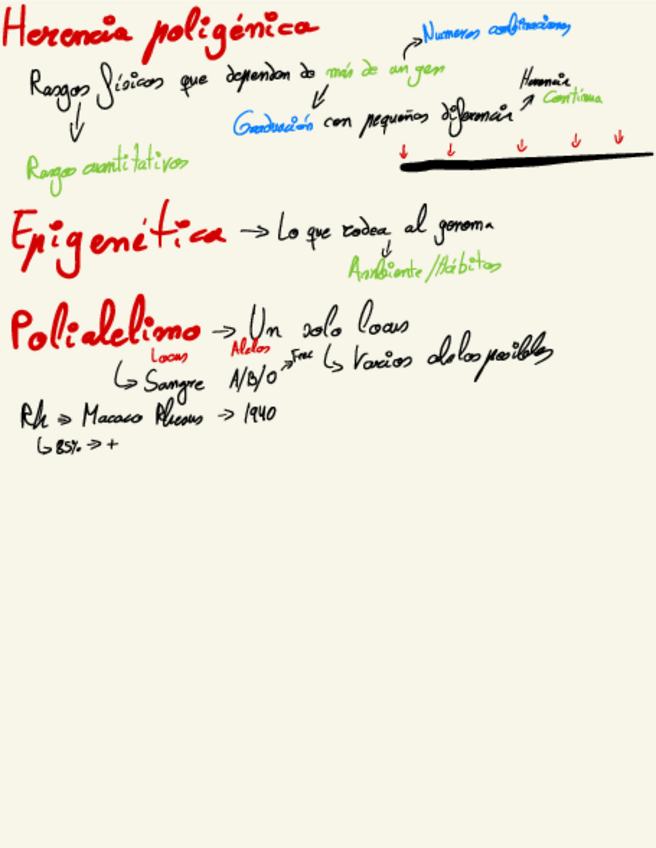 Herencia poligénica
Numeros combinaciones
Rasgos físicos que dependen de más de un gen
Herencia
Continua
Graduación con pequeñas diferencias
Rasgos cuantitativos
Epigenética → Lo que rodea al genoma
Ambiente/Hábitos
Polialelimo → Un solo locus
Locus Alelos
↳ Sangre A/B/O ↳ Varios alelos posibles
Rh ⇒ Macaco Rhesus → 1940
↳ 85% → +